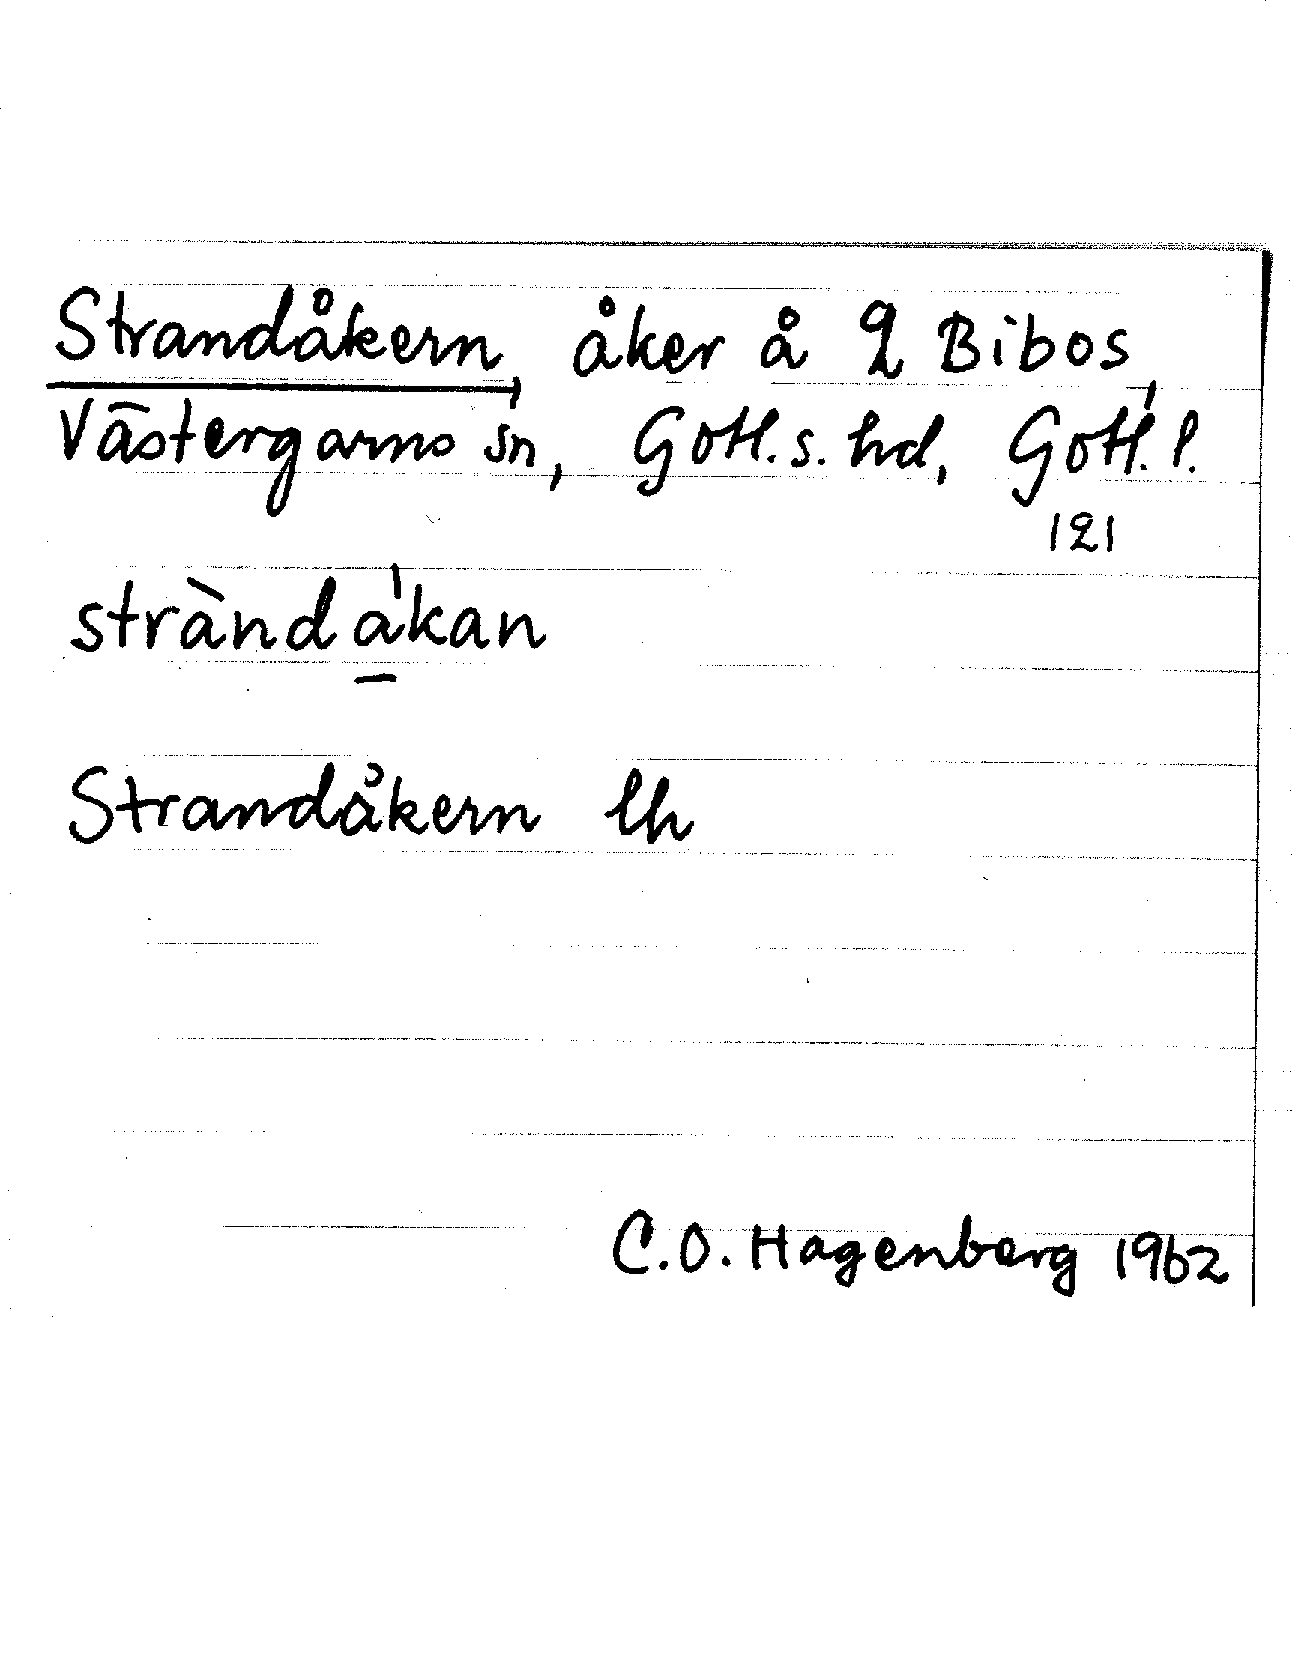 Strandåkern, åker å 2 Bibos,
Västergarns sn, Gotl. s. hd, Gotl. l.
121
strànda̱'kan
Strandåkern lh
C.O. Hagenberg 1962